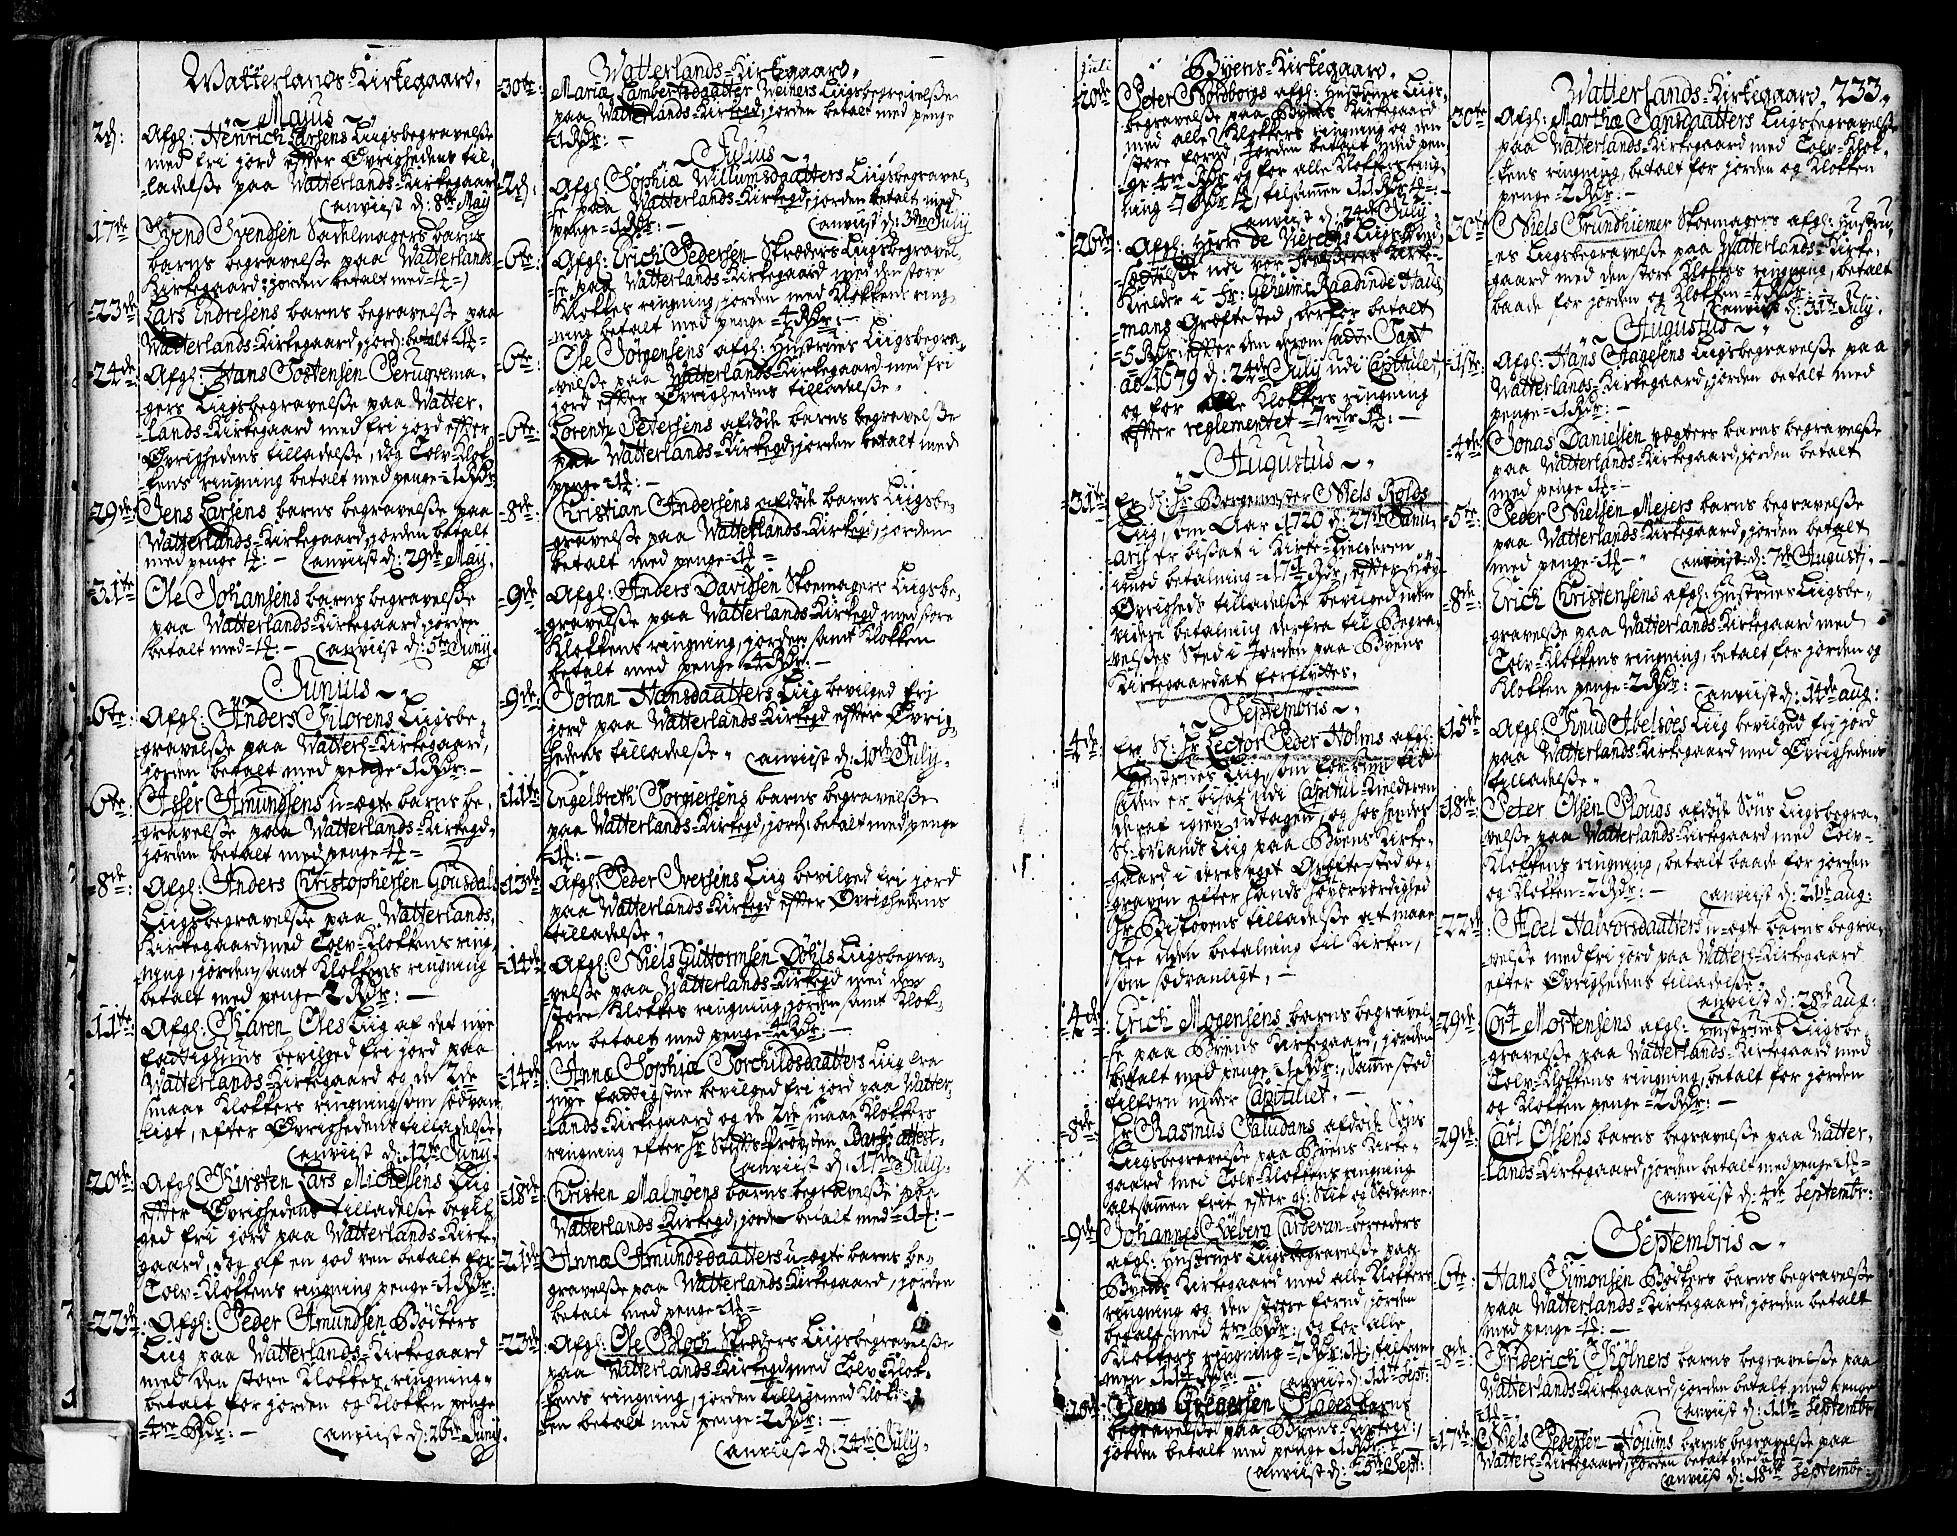 Watterlands-Kirkegaard.
Majus
2d: Afgl: Henrich Larsens Liigsbegravelse
med fri jord efter Øvrighedens til-
ladelse paa Watterlands-Kirkegaard
anviist d: 8de May
17de Svend Svendsen Sadelmagers barns
barns begravelse paa Watterlands
Kirkegaard: jorden betalt med
23de Lars Endresens barns begravelse paa
Watterlands-Kirkegaard, jord: betalt
24de Afgl: Hans Tostensen Peruqvema-
gers Liigsbegravelse paa Watter-
lands-Kirkegaard med fri jord efter
Øvrighedens tilladelse, dog Tolv-Klok-
kens ringning betalt med penge 1 Rdr
29de Jens Larsens barns begravelse paa
Watterlands-Kirkegaard, jorden betalt
med penge anviist d: 29de May.
31te Ole Johansens barns begravelse
paa Watterlands-Kirkegaard, jorden
betalt med anviist d: 5te Juny.
Junius
6te Afgl: Anders Filorens Liigsbe-
gravelse paa Watterl-Kirkegaard,
jorden betalt med penge 1 Rdr:
6te Asser Amundsens u-ægte barns be-
gravelse paa Watterlands-Kirkegd
jorden betalt med penge
8de Afgl: Anders Christophersen Gousdal
Liigsbegravelse paa Watterlands-
Kirkegaard med Tolv-Klokkens ring-
ning, jorden samt Klokkens ringning
betalt med penge 2 Rdr:
11te Afgl: Karen Oles Liig af det nye
fattighuus bevilged fri jord paa
Watterlands-Kirkegaard og de 2de
smaae Klokkers ringning som sædvan-
ligt, efter Øvrighedens tilladelse,
anviist d: 12te Juny.
20de Afgl: Kirsten Lars Mickelsens Liig
efter Øvrighedens tilladelse bevil-
ged fri jord paa Watterlands-Kirke-
gaard, dog af en god ven betalt for
Tolv-Klokkens ringning penge 1 Rdr:
22de Afgl: Peder Amundsen Bødkers
Liig paa Watterlands-Kirkegaard
med den store Klokkes ringning
betalt for jorden og Klokken penge
4re Rdr: anviist d: 26de Juny.
Watterlands-Kirkegaard.
30te Maria Lambertsdaatter Weiners Liigsbegravelse
paa Watterlands-Kirkegd, jorden betalt med penge
1 Rdr:
Julius
2d: Afgl: Sophia Willumsdaatters Liigsbegravel-
se paa Watterlands-Kirkegd, jorden betalt med
penge 1 Rdr: anviist d: 3die July
6te Afgl: Erich Pedersen Skræders Liigsbegravel-
se paa Watterlands-Kirkegaard med den store
Klokkes ringning, jorden med Klokkens ring-
ning betalt med penge 4 Rdr:
6te Ole Jørgensens afgl: Hustrues Liigsbegra-
velse paa Watterlands-Kirkegaard med fri
jord efter Øvrighedens tilladelse.
6te Lorentz Petersens afdøde barns begravelse
paa Watterlands-Kirkegd, jorden betalt med
penge
8de Christian Andersens afdøde barns Liigsbe-
gravelse paa Watterlands-Kirkegd, jorden
betalt med penge
9de Afgl: Anders Davidsen Skoemagers Liigsbe-
gravelse paa Watterlands-Kirkegd med store
Klokkens ringning, jorden samt Klokken
betalt med penge 4 Rdr:
9de Jøran Hansdaatters Liig bevilged fri
jord paa Watterlands-Kirkegd efter Øvrig-
hedens tilladelse anviist d: 10de July.
11te Engelbreth Torgiersens barns begravelse
paa Watterlands-Kirkegd, jord: betalt med penge
13de Afgl: Peder Iversens Liig bevilged fri jord
paa Watterlands-Kirkegd efter Øvrighedens
tilladelse.
14de Afgl: Niels Guttormsen Døhls Liigsbegra-
velse paa Watterlands-Kirkegd med den
store Klokkes ringning, jorden samt Klok-
ken betalt med penge 4 Rdr:
14de Anna Sophia Torchildsdaatters Liig fra
nye fattighuus bevilged fri jord paa Watter-
lands-Kirkegaard og de 2de smaae Klokkers
ringning efter Hr Stifts-Provsten attest.
anviist d: 17de July.
18de Christen Malmøens barns begravelse paa
Watterlands-Kirkegd, jorden betalt med
21de Anna Amundsdaatters u-ægte barns be-
gravelse paa Watterlands-Kirkegaard, jorden
betalt med penge
23de Afgl: Ole Bloch Skræders Liigsbegravelse
paa Watterlands-Kirkegd med Tolv-Klok-
kens ringning, jorden tilligemed Klok-
ken betalt med penge 2 Rdr:
anviist d: 24de July.
Juli
Byens-Kirkegaard.
20de Peter Nordborgs afgl: Hustrues Liigs-
begravelse paa Byens Kirkegaard
med alle Klokkers ringning og den
store forud, jorden betalt med pen-
ge 4re Rdr og for alle Klokkers ring-
ning 7 Rdr tilsammen 11 Rdr
anviist d: 24de July.
26de Afgl:
udi vor Frelseres Kirke-
Kielder i Fr: Geheime Raadinde Haus-
mans Græfte-sted, derfor betalt
5 Rdr efter den derom satte Taxt
ao 1679 d: 24de July udi Capitulet,
og for alle Klokkers ringning
efter reglementet 7 Rdr
Augustus
31te Sl: Hr Borgemester Niels Kolds
Liig, som Aar 1720 d: 27de Janu-
arij er bisat i Kirke-Kielderen
imod betalning 17 Rdr, efter høy
Øvrigheds tilladelse bevilged uden
videre betalning derfra til Begra-
velses Sted i Jorden paa Byens
Kirkegaard at forflyttes.
Septembris
4de Sl: Hr Lector Peder Holms afgl:
Hustrues Liig, som for en tiid
siden er bisat udi Capitul-Kielderen
deraf igien udtagen, og hos hendes
Sl: Mands Liig paa Byens Kirke-
gaard i deres eget Græfte-sted be-
graven efter Hans Høyærværdighed
Hr Bispens tilladelse at maae
skee uden betalning til Kirken,
som sædvanligt.
4de Erich Mogensens barns begravel-
se paa Byens Kirkegaard, jorden
betalt med penge 1 Rdr:, samme stod
tilforn under Capitulet.
8de Hr Rasmus Paludans afdøde Søns
Liigsbegravelse paa Byens Kirke-
gaard med Tolv-Klokkens ringning
altsammen frit efter gl: Skik og Sædvane.
9de Johannes Siøberg Carduvan-bereeders
afgl: Hustrues Liigsbegravelse paa
Byens Kirkegaard med alle Klokkers
ringning og den store forud, jorden
betalt med 4re Rdr:, og for alle
Klokkers ringning 7 Rdr tilsam-
men 11 Rdr: anviist d: 11te Sept:
20de Jens Gregersen Plades barns
begravelse paa Byens-Kirkegd:,
jorden betalt med penge 1 Rdr:
anviist d: 25de Sept:
Watterlands-Kirkegaard. 233.
30te Afgl: Martha Hansdaatters Liigsbegravelse
paa Watterlands-Kirkegaard med Tolv-Klok-
kens ringning, betalt for jorden og Klokken
penge 2 Rdr:
30te Niels Trundhiemer Skoemagers afgl: Hustru-
es Liigsbegravelse paa Watterlands-Kirke-
gaard med den store Klokkes ringning, betalt
baade for jorden og Klokken 4 Rdr:
anviist d: 31te July.
Augustus
1ste Afgl: Hans Aagesens Liigsbegravelse paa
Watterlands-Kirkegaard, jorden betalt med
penge 1 Rdr:
4de Jonas Danielsen vegters barns begravelse
paa Watterlands-Kirkegaard, jorden betalt
med penge
5te Peder Nielsen Mejers barns begravelse
paa Watterlands-Kirkegaard, jorden betalt
med penge anviist d: 7de Augusti.
8de Erich Christensens afgl: Hustrues Liigsbe-
gravelse paa Watterlands-Kirkegaard med
Tolv-Klokkens ringning, betalt for jorden og
Klokken penge 2 Rdr: anviist d: 14de aug:
15de Afgl: Knud Abelsøes Liig bevilged fri jord
paa Watterlands-Kirkegaard med Øvrighedens
tilladelse.
18de Peter Olsen Plougs afdøde Søns Liigsbegra-
velse paa Watterlands-Kirkegaard med Tolv-
Klokkens ringning, betalt baade for jorden
og Klokken 2 Rdr: anviist d: 21de aug:
22de Adel Halvorsdaatters u-ægte barns begra-
velse med fri jord paa Watterl-Kirkegaard
efter Øvrighedens tilladelse.
anviist d: 28de aug:
29de Cort Mortensens afgl: Hustrues Liigsbe-
gravelse paa Watterlands-Kirkegaard med
Tolv-Klokkens ringning, betalt for jorden
og Klokken penge 2 Rdr:
29de Carl Olsens barns begravelse paa Watter-
lands-Kirkegaard, jorden betalt med penge
anviist d: 4de Septembr:
Septembris
6te Hans Simonsen Bødkers barns begravelse
paa Watterlands-Kirkegaard, jorden betalt
med penge
8de Friderich Kølners barns begravelse paa
Watterlands-Kirkegaard, jorden betalt med penge
anviist d: 11te Septembr
17de Niels Pedersen Høiums barns begravelse paa
Watterl-Kirkegaard, jorden betalt med
anviist d: 18de Septembr: